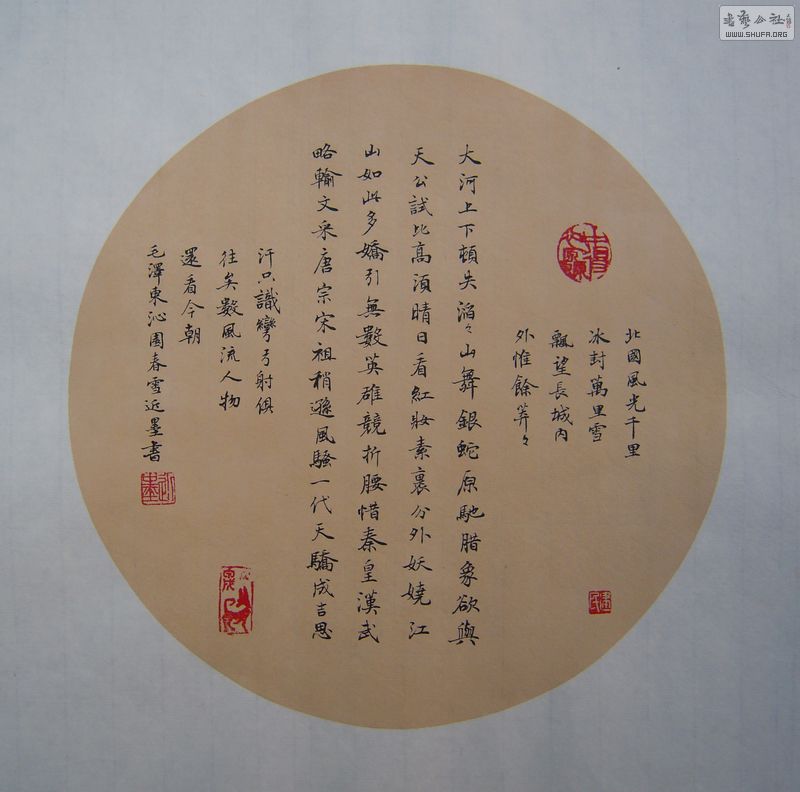 北國風光千里
冰封萬里雪
飄望長城内
外惟餘莽々
大河上下頓失滔々山舞銀蛇原馳腊象欲與
天公試比高須晴日看紅妝素裹分外妖嬈江
山如此多嬌引無數英雄競折腰惜秦皇漢武
略輸文采唐宗宋祖稍遜風騷一代天驕成吉思
汗只識彎弓射俱
往矣數風流人物
還看今朝
毛澤東沁園春雪近墨書
近墨
書藝公社
WWW.SHUFA.ORG